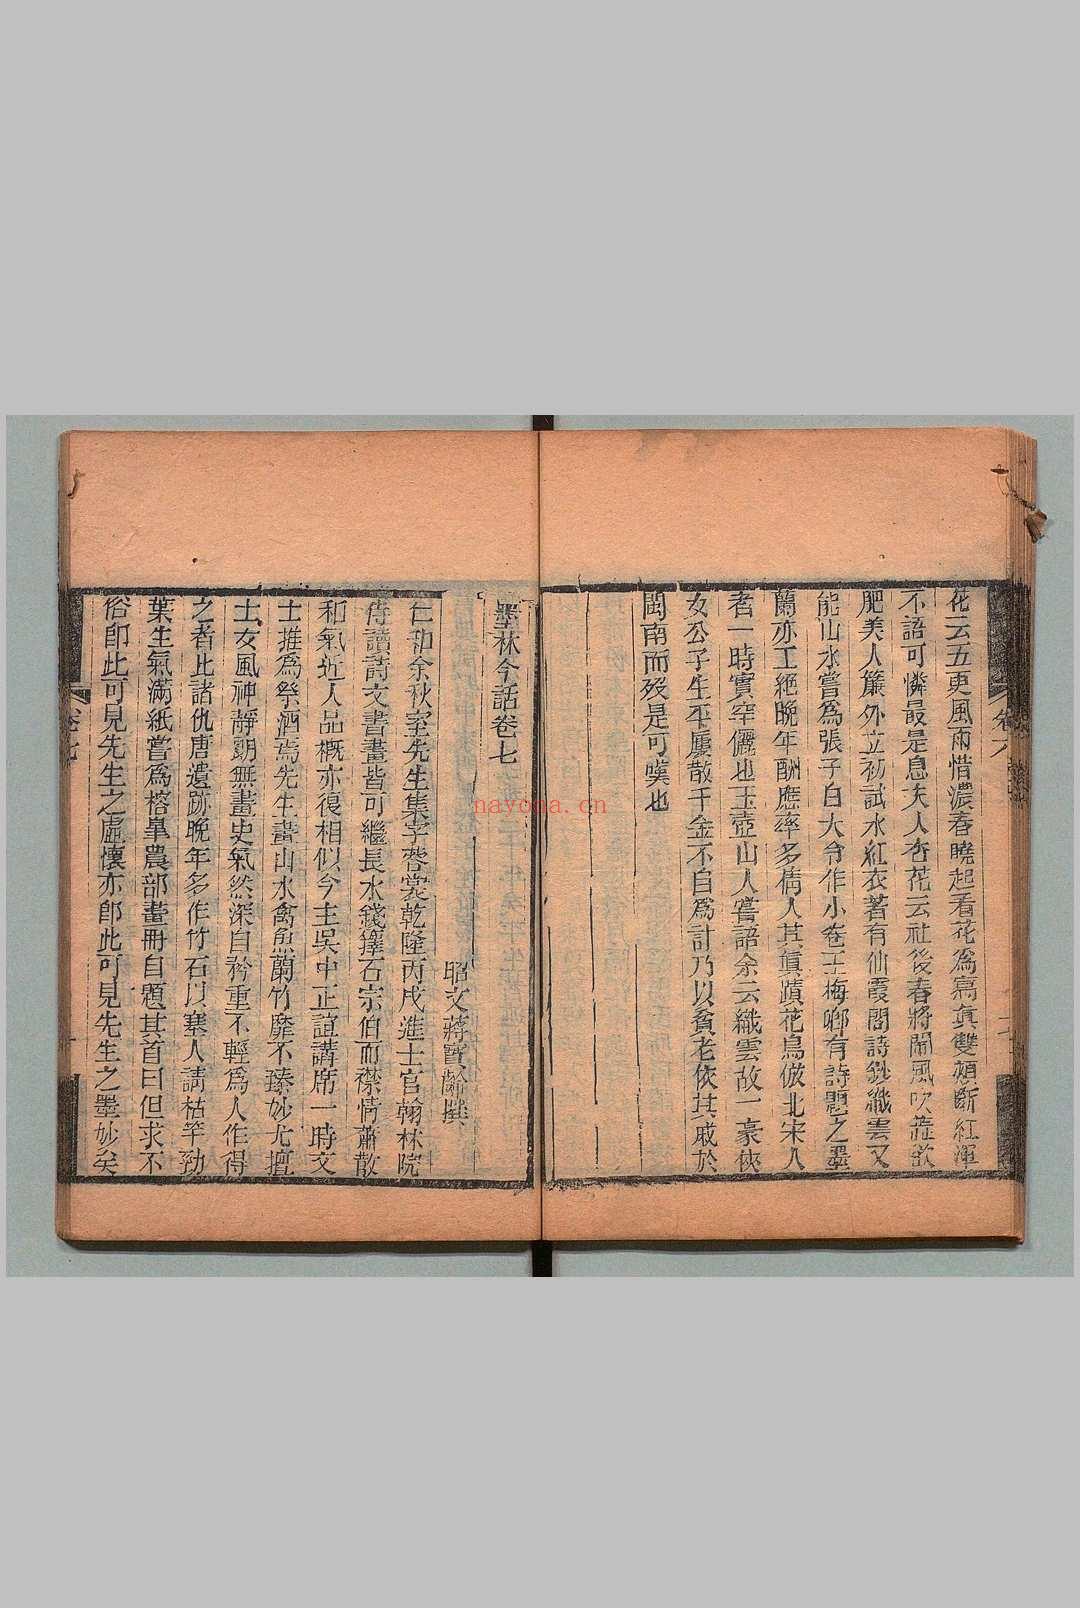 花云五更風雨惜濃春曉起看花為寫真雙頰斷紅渾
不語可憐最是息夫人杏花云社後春將鬧風吹
肥美人簾外立初試水紅衣著有仙霞閣詩鈔纖雲又
能山水嘗為張子白大令作小卷王梅卿有詩題之墨
蘭亦工絕晚年酬應率多倩人其真蹟花鳥倣北宋人
者一時實罕儷也玉壺山人嘗語余云纖雲故一豪俠
女公子生平屢散千金不自為計乃以貧老依其戚於
閩南而歿是可嘆也
卷六
墨林今話卷七
昭文蔣寶齡撰
仁和余秋室先生集字蓉裳乾隆丙戌進士官翰林院
侍讀詩文書畫皆可繼長水錢籜石宗伯而襟情蕭散
和氣近人品概亦復相似今主吳中正誼講席一時文
士推為祭酒焉先生畫山水禽魚蘭竹靡不臻妙尤擅
士女風神靜朗無畫史氣然深自矜重不輕為人作得
之者比諸仇唐遺跡晚年多作竹石以塞人請枯竿勁
葉生氣滿紙嘗為榕臯農部畫冊自題其首曰但求不
俗卽此可見先生之虛懷亦卽此可見先生之墨妙矣
卷七
nayona.cn